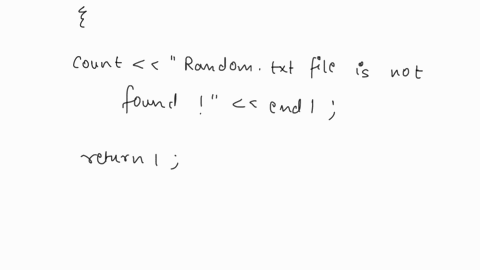 {
count << "Random.txt file is not
found !" << endl ;
return 1 ;